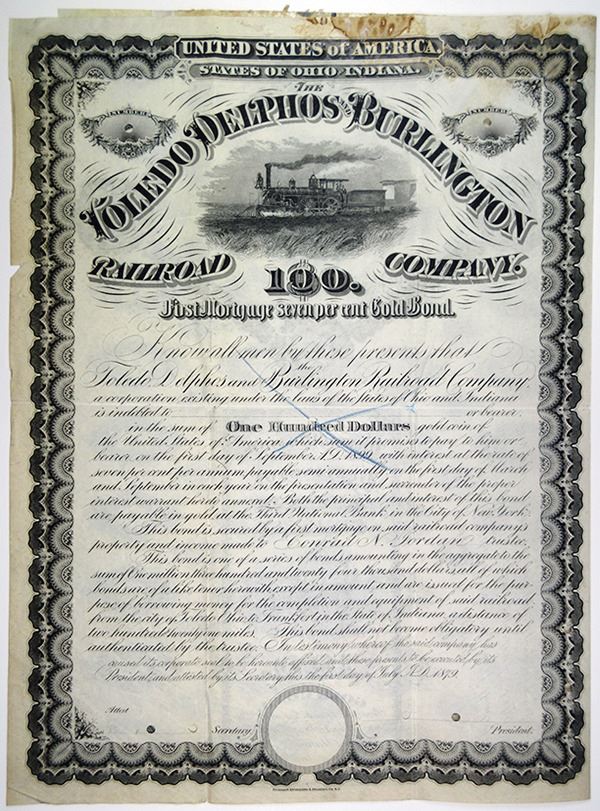 UNITED STATES of AMERICA.
STATES OF OHIO. INDIANA.
NUMBER
NUMBER
THE
TOLEDO DELPHOS AND BURLINGTON
RAILROAD COMPANY.
100.
First Mortgage seven per cent Gold Bond.
Know all men by these presents that
the
Toledo, Delphos and Burlington Railroad Company,
a corporation existing under the laws of the States of Ohio and Indiana
is indebted to or bearer,
in the sum of One Hundred Dollars gold coin of
the United States of America which sum it promises to pay to him or
bearer, on the first day of September, A.D. with interest at the rate of
seven per cent per annum payable semi annually on the first day of March
and September in each year on the presentation and surrender of the proper
interest warrant hereto annexed. Both the principal and interest of this bond
are payable in gold at the Third National Bank in the City of New York.
This bond is secured by a first mortgage on said railroad company's
property and income made to Conrad N. Jordan trustee.
This bond is one of a series of bonds amounting in the aggregate to the
sum of One million three hundred and twenty four thousand dollars all of which
bonds are of a like tenor herewith except in amount and are issued for the pur-
pose of borrowing money for the completion and equipment of said railroad
from the city of Toledo Ohio to Frankfort in the State of Indiana a distance of
two hundred twenty one miles. This bond shall not become obligatory until
authenticated by the trustee. In testimony whereof the said company has
caused its corporate seal to be hereunto affixed and these presents to be executed by its
President, and attested by its Secretary this the first day of July A.D. 1879.
Attest
Secretary. President.